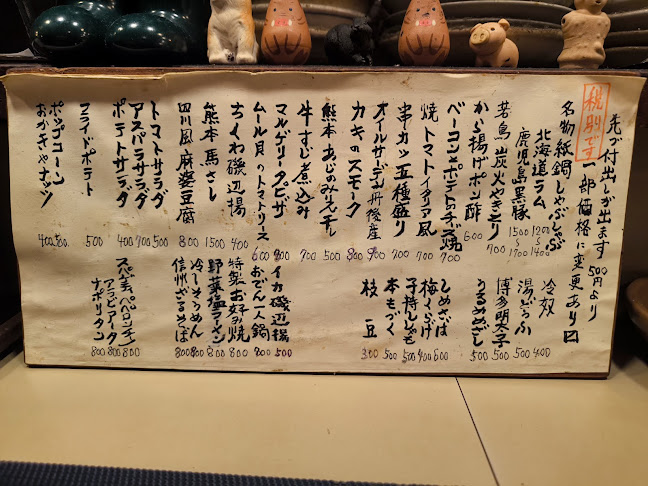 先づ付出しが出ます 500円より
税別です
一部価格に変更あり
名物紙鍋しゃぶしゃぶ
北海道ラム 1200〜1700
鹿児島黒豚 1500〜1400
若鳥炭火やきとり 700
から揚げポン酢 600
ベーコンとポテトのチーズ焼 700
焼トマトイタリア風 700
串カツ五種盛り 700
オイルサーデン丹後産 900
カキのスモーク 800
熊本あじみメンチ 500
牛すじ煮込み 700
マルゲリータピザ 800
ムール貝のトマトソース 600
ちくわ磯辺揚 400
熊本馬さし 1500
四川風麻婆豆腐 800
トマトサラダ 500
アスパラサラダ 700
ポテトサラダ 400
フライドポテト 500
ポップコーン 500
おかきやナッツ 400
冷奴 400
湯どうふ 500
博多明太子 500
うるめめざし 500
しめさば 600
梅くらげ 400
子持ししゃも 500
本もづく 500
枝豆 300
イカ磯辺揚 500
おでん一人鍋 800
特製お好み焼 800
野菜塩ラーメン 800
冷しそうめん 800
信州ざるそば 800
スパゲッティ ペペロンチーノ 800
アラビアータ 800
ナポリタン 800